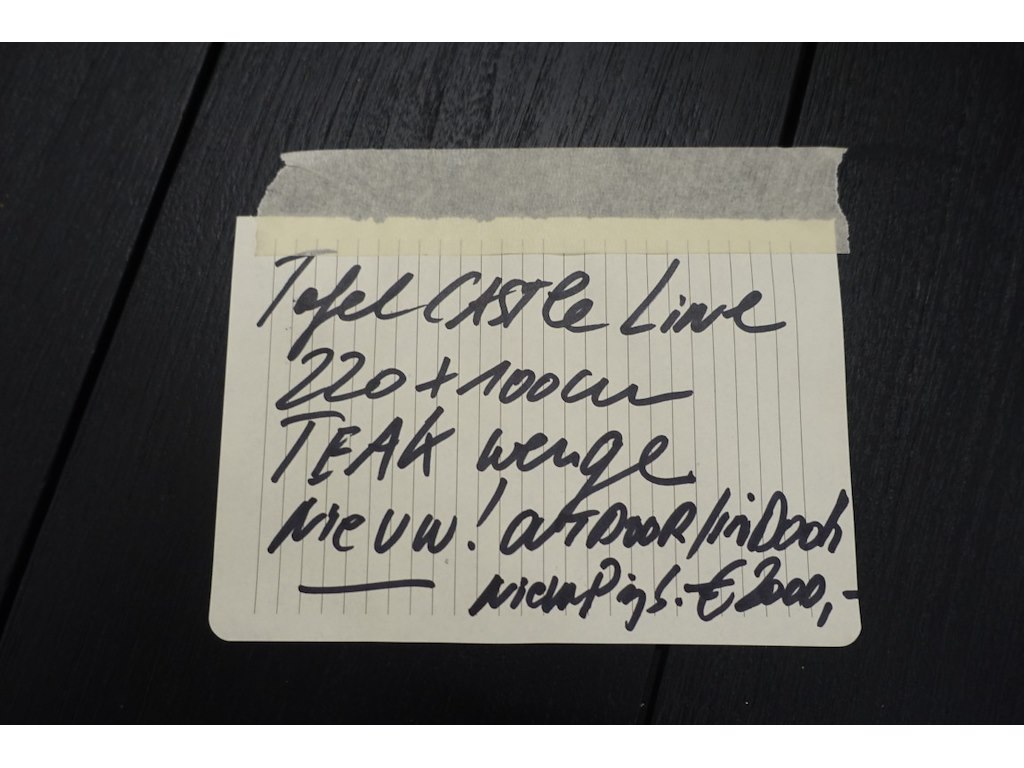 Tafel CASTle Line
220 + 100cm
TEAK wenge
Nieuw! OUTDOOR/inDooR
€ 2000,-